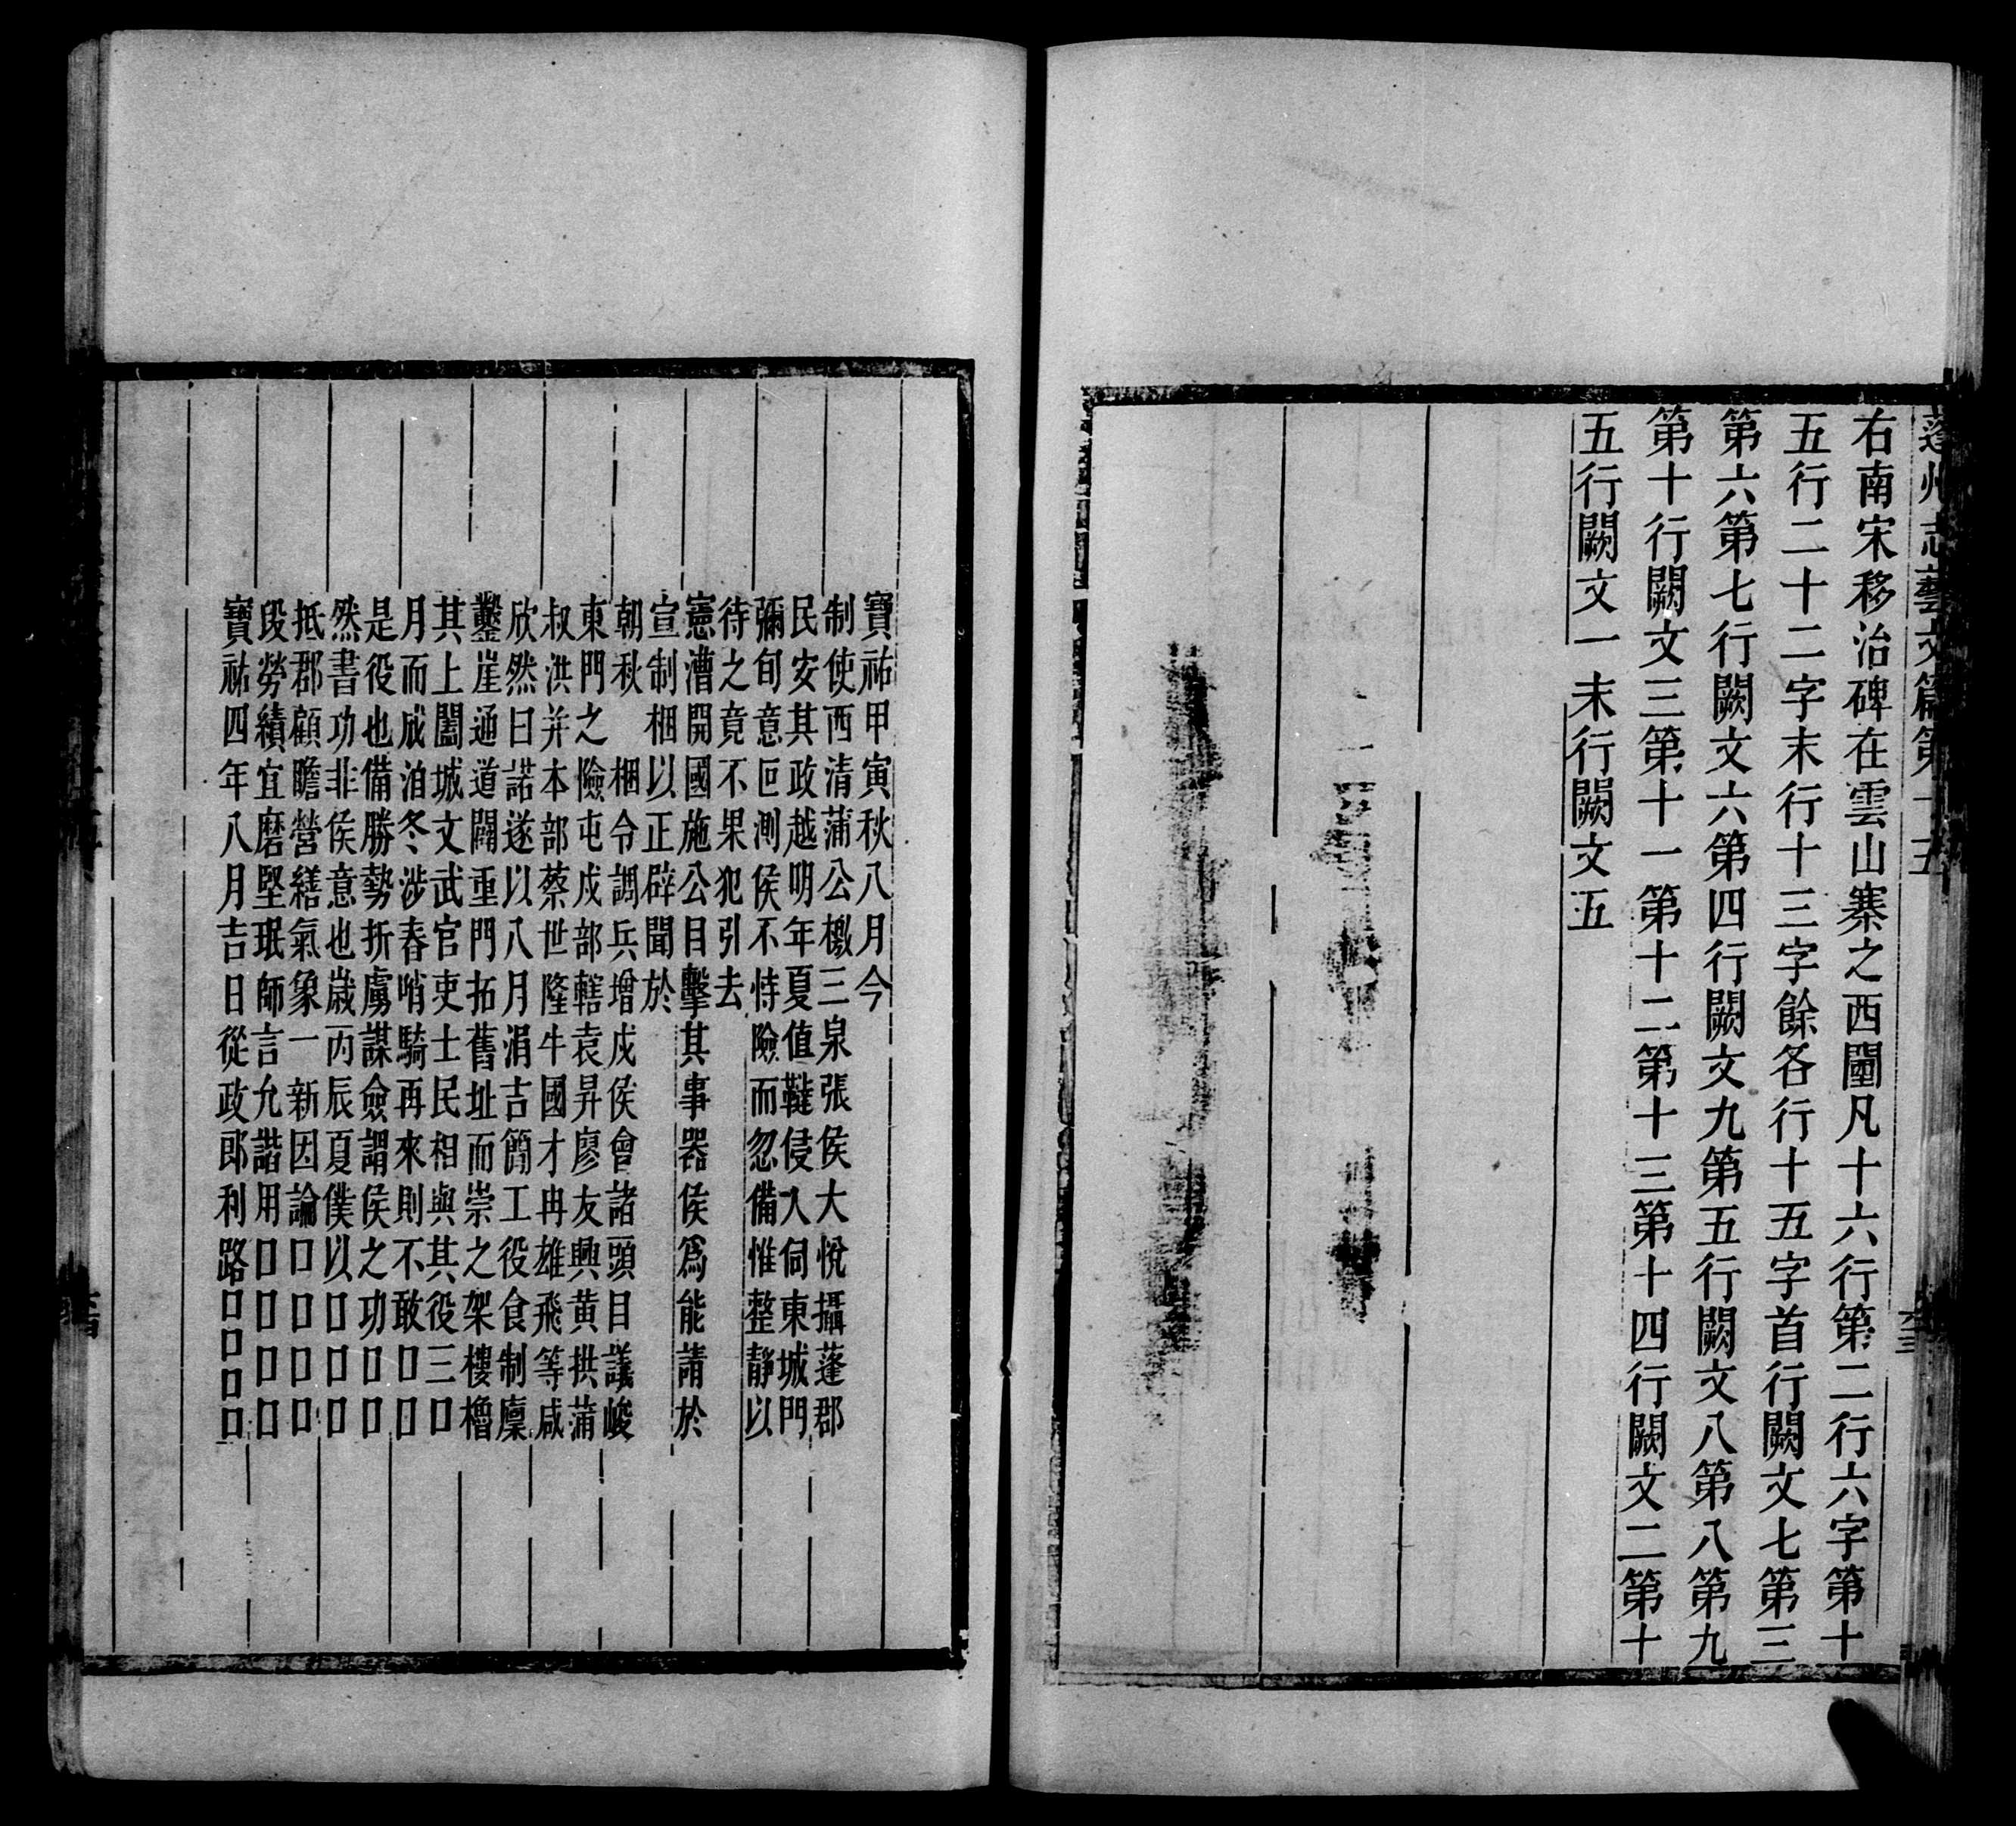 蓬州志藝文篇第十五
右南宋移治碑在雲山寨之西闉凡十六行第二行六字第十
五行二十二字末行十三字餘各行十五字首行闕文七第三
第六第七行闕文六第四行闕文九第五行闕文八第八第九
第十行闕文三第十一第十二第十三第十四行闕文二第十
五行闕文一末行闕文五
寶祐甲寅秋八月今
制使西清蒲公檄三泉張侯大悅攝蓬郡
民安其政越明年夏值韃侵入伺東城門
彌旬意叵測侯不恃險而忽備惟整靜以
待之竟不果犯引去
憲漕開國施公目擊其事器侯爲能請於
宣制梱以正辟聞於
朝秋 梱令調兵增戍侯會諸頭目議峻
東門之險屯戍部轄袁昇廖友興黃拱蒲
叔洪并本部蔡世隆牛國才冉雄飛等咸
欣然曰諾遂以八月涓吉簡工役食制廩
鑿崖通道闢重門拓舊址而崇之架樓櫓
其上闔城文武官吏士民相與其役三口
月而成洎冬涉春哨騎再來則不敢口口
是役也備勝勢折虜謀僉謂侯之功口口
然書功非侯意也歲丙辰夏僕以口口口
抵郡顧瞻營繕氣象一新因論口口口口
段勞績宜磨堅珉師言允諧用口口口口
寶祐四年八月吉日從政郎利路口口口口